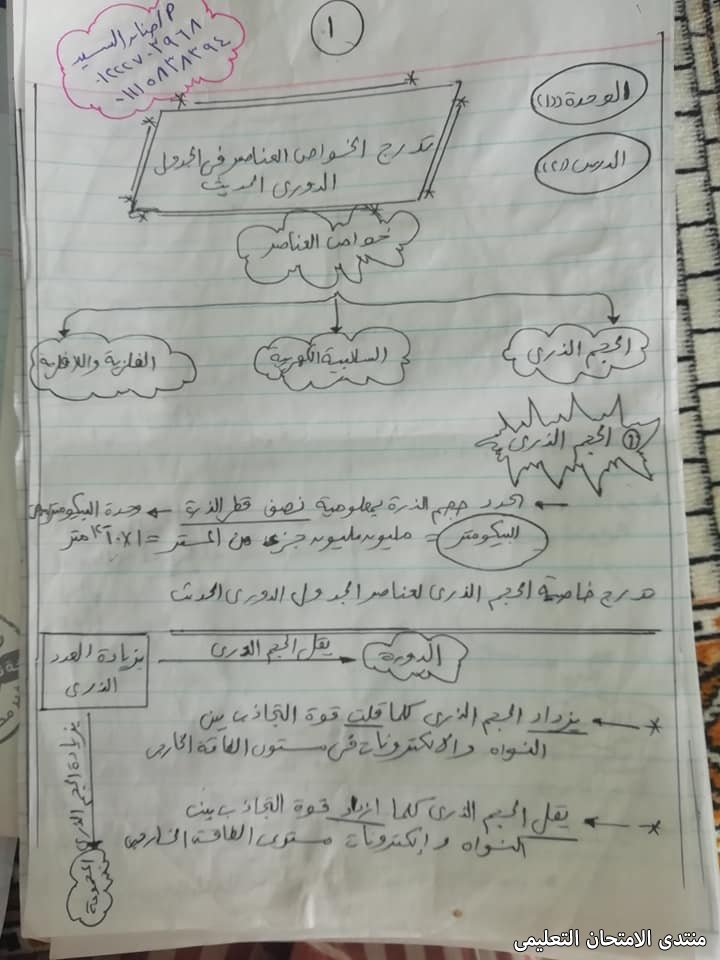 ١
م/صفاء السيد
٠١٢٢٢٧٠٣٩٦٨
٠١١١٥٨٣٨٣٩٤
الوحدة (١)
الدرس (٢)
تدرج الخواص العناصر فى الجدول
الدورى الحديث
خواص العناصر
الحجم الذرى
السالبية الكهربية
الفلزية واللافلزية
① الحجم الذرى
← يحدد حجم الذرة بمعلومية نصف قطر الذرة ← وحدة البيكومتر
البيكومتر = مليون مليون جزء من المتر = ١×١٠⁻¹² متر
تدرج خاصية الحجم الذرى لعناصر الجدول الدورى الحديث
بزيادة العدد
الذرى
يقل الحجم الذرى
الدورة
* ← يزداد الحجم الذرى كلما قلت قوة التجاذب بين
النواه والإلكترونات فى مستوى الطاقة الخارجى
* ← يقل الحجم الذرى كلما ازداد قوة التجاذب بين
النواه وإلكترونات مستوى الطاقة الخارجى
يزيادة الحجم الذرى
المجموعة
منتدى الامتحان التعليمى